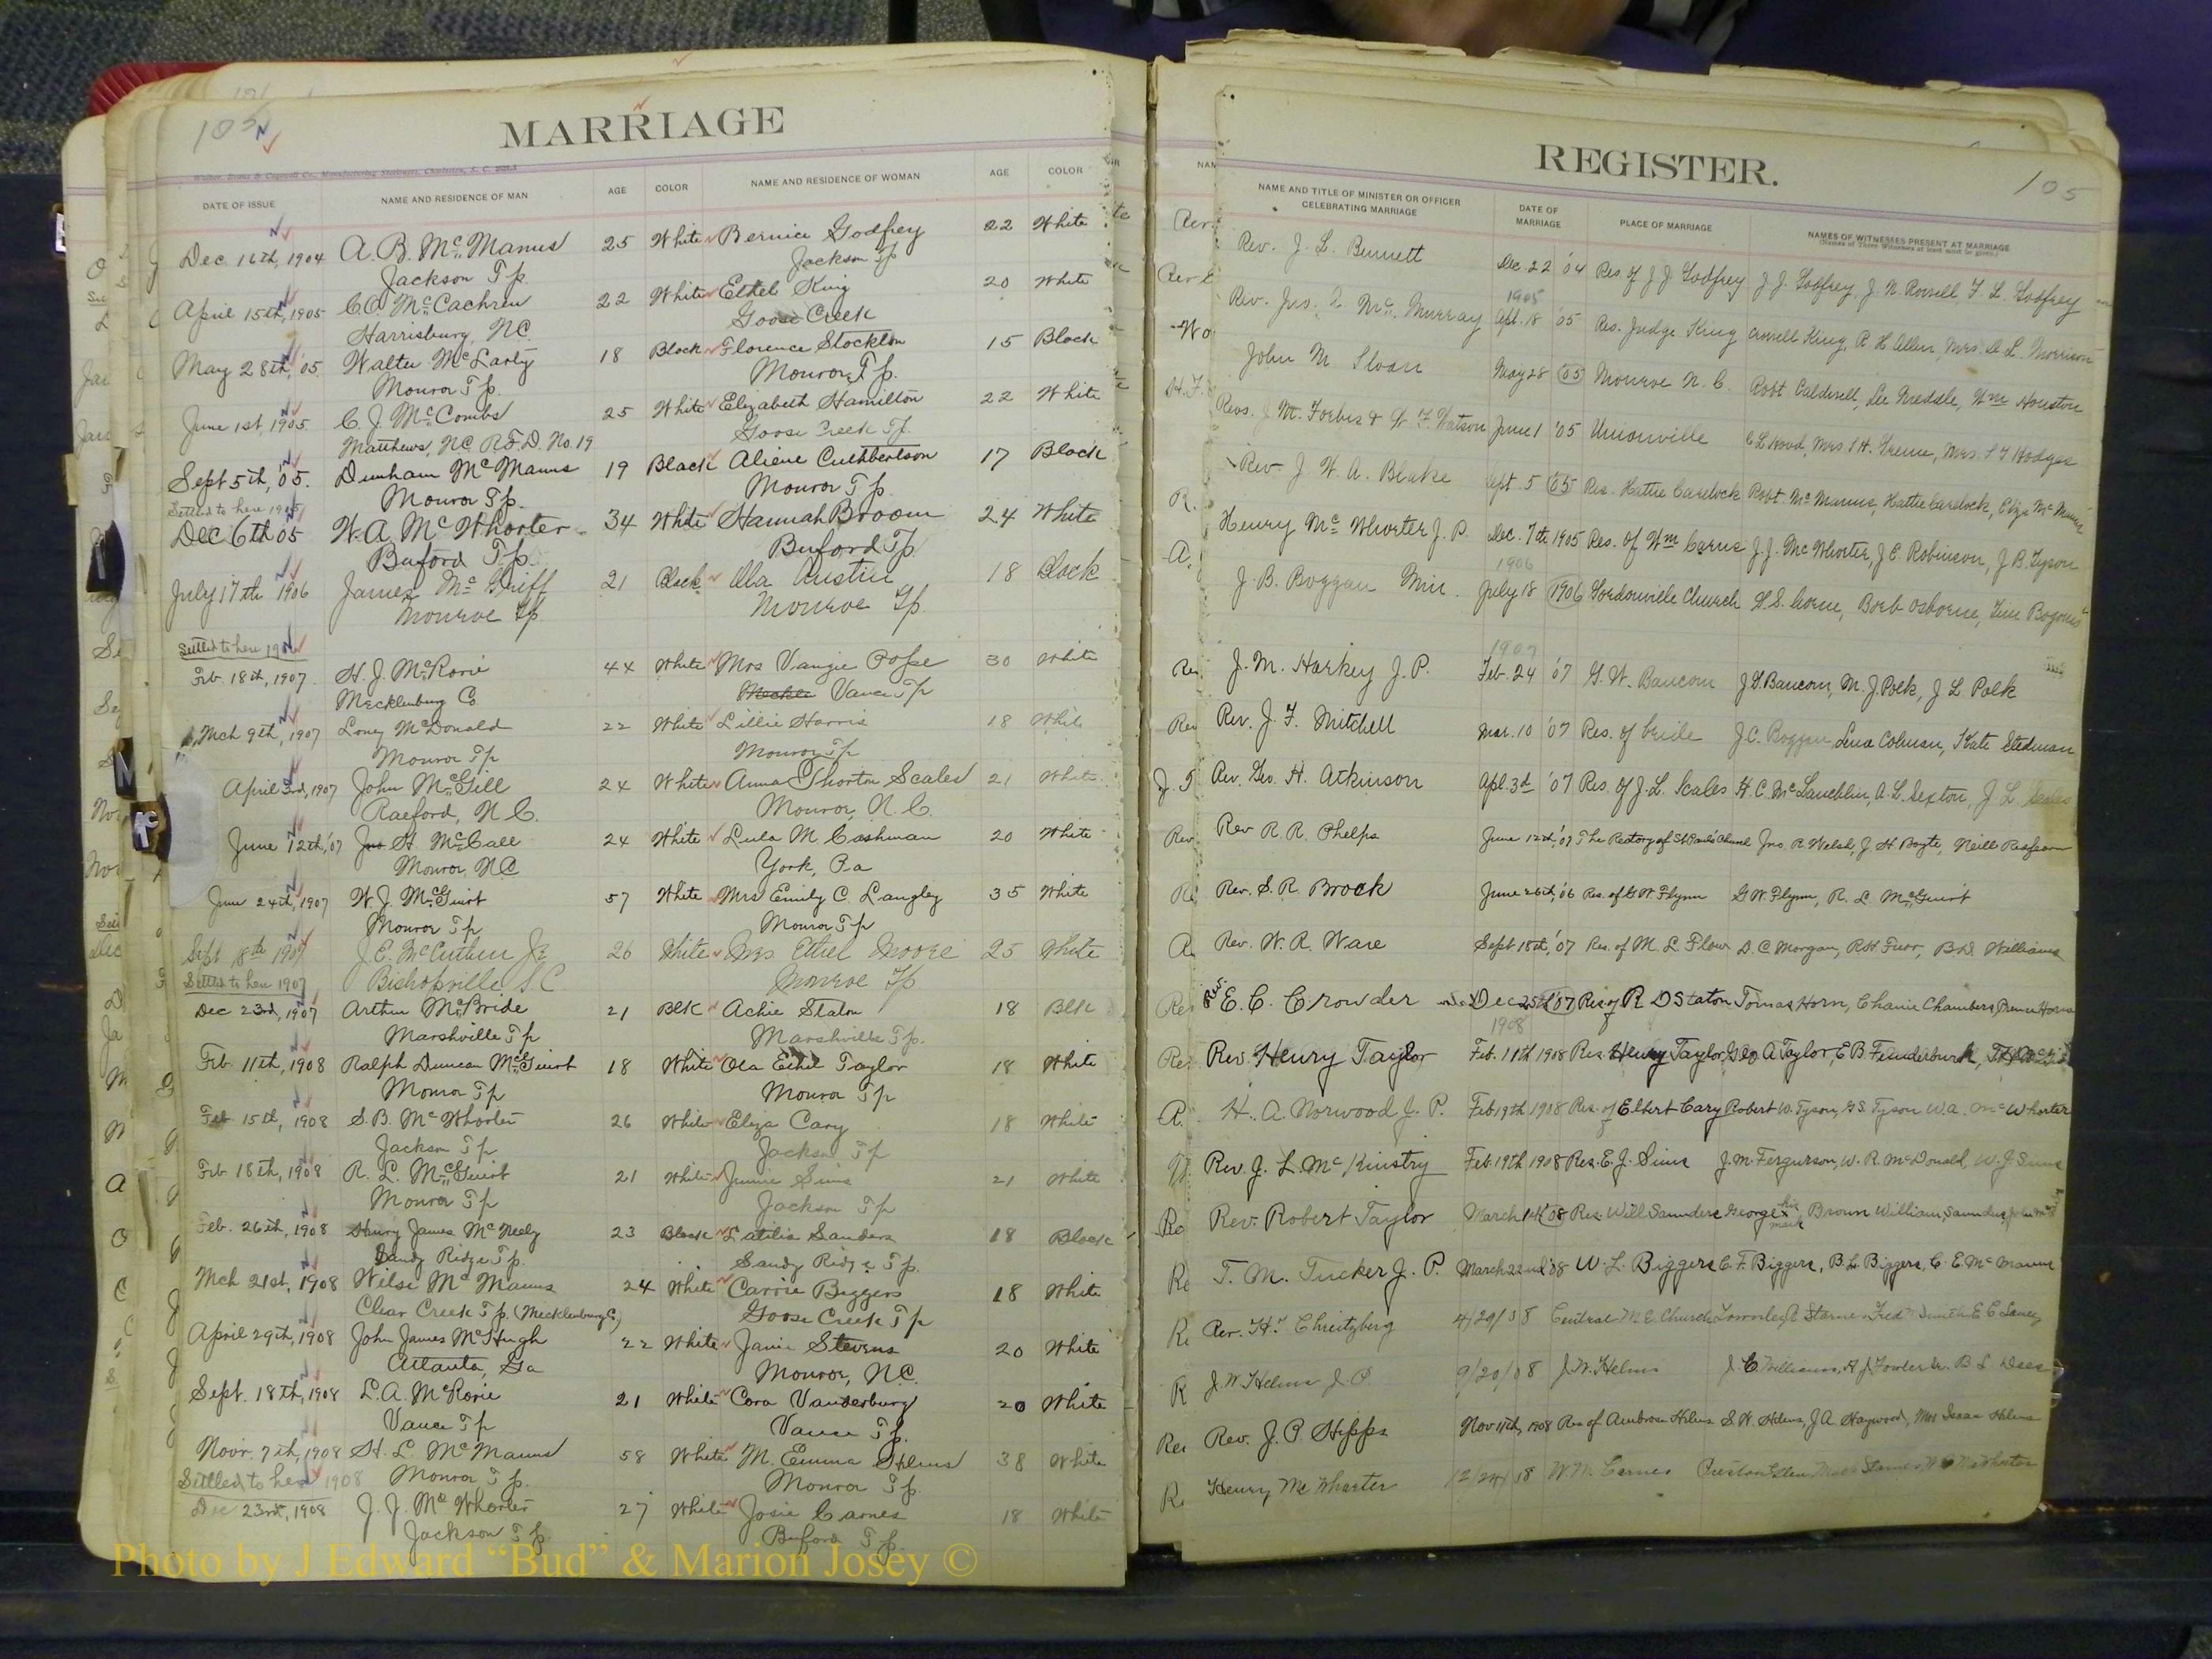 105
MARRIAGE
Walker, Evans & Cogswell Co., Manufacturing Stationers, Charleston, S. C.
DATE OF ISSUE NAME AND RESIDENCE OF MAN AGE COLOR NAME AND RESIDENCE OF WOMAN AGE COLOR
Dec. 16th, 1904 A. B. McManus 25 White Bernice Godfrey 22 White
Jackson Tp Jackson Tp
April 15th, 1905 C.A. McCachren 22 White Ethel King 20 White
Harrisburg, NC. Goose Creek
May 28th, '05. Walter McLarty 18 Black Florence Stockton 15 Black
Monroe Tp. Monroe Tp.
June 1st, 1905 C. J. McCombs 25 White Elizabeth Hamilton 22 White
Matthews, NC R.F.D. No. 19 Goose Creek Tp.
Sept 5th, '05. Dunham McManus 19 Black Aliene Cuthbertson 17 Black
Monroe Tp. Monroe Tp.
Settled to here 1905
Dec 6th 05 W. A. McWhorter 34 White Hannah Broom 24 White
Buford Tp. Buford Tp
July 17th 1906 James McGriff 21 Black Austin 18 Black
Monroe Tp Monroe Tp.
Settled to here 1906
Feb. 18th, 1907 H. J. McRorie 44 White Mrs Vangie Pope 30 White
Mecklenburg Co Vance Tp
Mch 9th, 1907 Loney McDonald 22 White Lillie Harris 18 White
Monroe Tp Monroe Tp
April 3rd, 1907 John McGill 24 White Anna Shorton Scales 21 White
Raeford, N.C. Monroe, N.C.
June 12th, '07 Jno H. McCall 24 White Lula M. Cashman 20 White
Monroe, NC York, Pa
June 24th, 1907 W. J. McGuirt 57 White Mrs Emily C. Langley 35 White
Monroe Tp Monroe Tp
Sept 18th 1907 J. E. McCutchen Jr 26 White Mrs. Ethel Moore 25 White
Settled to here 1907 Bishopville S.C Monroe Tp
Dec 23rd, 1907 Arthur McBride 21 Blk Achie Staton 18 Blk
Marshville Tp Marshville Tp.
Feb. 11th, 1908 Ralph Duncan McGuirt 18 White Ola Ethel Taylor 18 White
Monroe Tp Monroe Tp
Feb 15th, 1908 S. B. McWhorter 26 White Eliza Cary 18 White
Jackson Tp Jackson Tp
Feb 18th, 1908 R. L. McGuirt 21 White Jennie Sims 21 White
Monroe Tp Jackson Tp
Feb. 26th, 1908 Henry James McNeely 23 Black Latilia Sanders 18 Black
Sandy Ridge Tp. Sandy Ridge Tp.
Mch 21st, 1908 Wilse McManus 24 White Carrie Biggers 18 White
Clear Creek Tp. (Mecklenburg Co) Goose Creek Tp
April 29th, 1908 John James McHugh 22 White Janie Stevens 20 White
Atlanta, Ga Monroe, N.C.
Sept. 18th, 1908 L. A. McRorie 21 White Cora Vanderburg 20 White
Vance Tp Vance Tp.
Novr. 7th, 1908 H. L. McManus 58 White M. Emma Helms 38 White
Settled to here 1908 Monroe Tp. Monroe Tp.
Dec 23rd, 1908 J. J. McWhorter 27 White Josie Carnes 18 White
Jackson Tp. Buford Tp.
REGISTER.
105
NAME AND TITLE OF MINISTER OR OFFICER CELEBRATING MARRIAGE DATE OF MARRIAGE PLACE OF MARRIAGE NAMES OF WITNESSES PRESENT AT MARRIAGE
(Names of Three Witnesses at least must be given)
Rev. J. L. Bennett Dec. 22 '04 Res of J J Godfrey J. J. Godfrey, J. N. Powell F. L. Godfrey
1905
Rev. Jno. McMurray Apl. 18 '05 Res. Judge King King, R H Allen, Mrs. Morrison
John M Sloan May 28 05 Monroe N.C. Robt Caldwell, Lee Houston
Revs. J. M. Forbis & W. F. Watson June 1 '05 Unionville C L Hood, Mrs. Greene, Mrs. Hodges
Rev. J. W. A. Blake Spt. 5 05 Res. Hattie Caselock Robt McManus, Hattie Caselock, Eliza McManus
Henry McWhorter J. P. Dec. 7th 1905 Res. of Wm Carnes J. J. McWhorter, J. E. Robinson, J. B. Tyson
1906
J. B. Boggan Min. July 18 1906 Gordonville Church Borb Osborne
1907
J. M. Harkey J. P. Feb. 24 '07 G. W. Baucom J. G. Baucom, M. J. Polk, J L Polk
Rev. J. F. Mitchell Mar. 10 '07 Res. of bride J. C. Boggan, Lena Coleman, Kate Stedman
Rev. Geo. H. Atkinson Apl 3d '07 Res. of J. L. Scales H. C. McLauchlin, A. L. Sexton, J L Scales
Rev R. R. Phelps June 12th, '07 The Rectory of St Paul's Church Jno. R. Welsh, J H Boyte, Neill Redfearn
Rev. S. R. Brock June 26th, '06 Res. of G W. Flynn G W. Flynn, R. L. McGuirt
Rev. W. R. Ware Sept 18th, '07 Res. of M. L Flow D. C Morgan, R H Furr, B. D. Williams
Rev. E. C. Crowder Dec 25th '07 Res of R D Staton Tomas Horn, Chanie Chambers, Horne
1908
Rev. Henry Taylor Feb. 11th 1908 Res. Henry Taylor Geo A Taylor, E B. Funderburk,
H. A. Norwood J. P. Feb 19th 1908 Res. of Elbert Cary Robert W. Tyson, G. S. Tyson W. a. McWhorter
Rev. J. L. McKinstry Feb. 19th 1908 Res. E. J. Sims J. M. Fergurson, W. R. McDonald, W. J. Sims
Rev. Robert Taylor March 1st '08 Res. Will Saunders George his mark Brown William Saunders
T. M. Tucker J. P. March 22nd '08 W. L. Biggers C. F. Biggers, B. L. Biggers, C. E. McManus
Rev. H. F. Chreitzberg 4/29/08 Central M E Church Townley R Starnes Fred Smith E C Laney
J. W. Helms J. P. 9/20/08 J. W. Helms J. C. Williams, A. J. Fowler B. L. Dees
Rev. J. P. Hipps Nov 11th, 1908 Res of Ambrose Helms S. H. Helms, J A Haywood, Mrs Isaac Helms
Henry McWhorter 12/24/08 W. M. Carnes McWhorter
Photo by J Edward “Bud” & Marion Josey ©